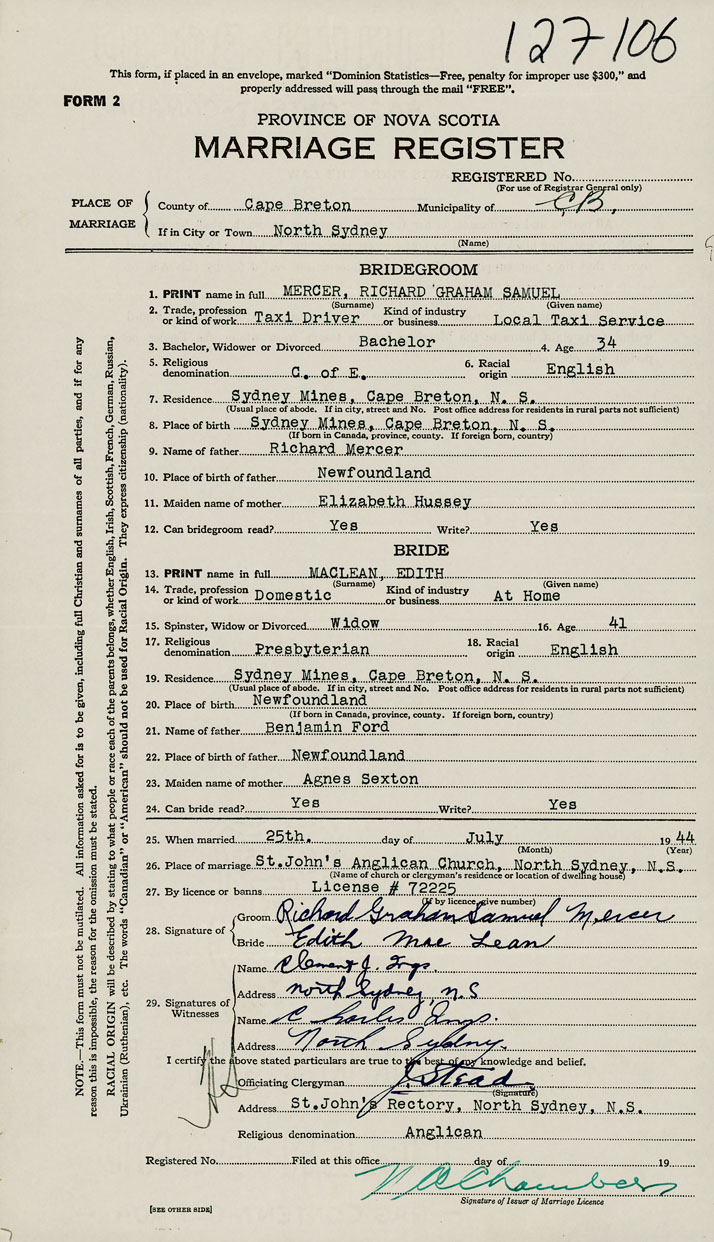 127-106
This form, if placed in an envelope, marked "Dominion Statistics—Free, penalty for improper use $300," and
properly addressed will pass through the mail "FREE".
FORM 2
PROVINCE OF NOVA SCOTIA
MARRIAGE REGISTER
REGISTERED No.
(For use of Registrar General only)
PLACE OF MARRIAGE
County of Cape Breton Municipality of C.B.,
If in City or Town North Sydney
(Name)
BRIDEGROOM
1. PRINT name in full MERCER, RICHARD GRAHAM SAMUEL
(Surname) (Given name)
2. Trade, profession or kind of work Taxi Driver Kind of industry or business Local Taxi Service
3. Bachelor, Widower or Divorced Bachelor 4. Age 34
5. Religious denomination C. of E. 6. Racial origin English
7. Residence Sydney Mines, Cape Breton, N. S.
(Usual place of abode. If in city, street and No. Post office address for residents in rural parts not sufficient)
8. Place of birth Sydney Mines, Cape Breton, N. S.
(If born in Canada, province, county. If foreign born, country)
9. Name of father Richard Mercer
10. Place of birth of father Newfoundland
11. Maiden name of mother Elizabeth Hussey
12. Can bridegroom read? Yes Write? Yes
BRIDE
13. PRINT name in full MACLEAN, EDITH
(Surname) (Given name)
14. Trade, profession or kind of work Domestic Kind of industry or business At Home
15. Spinster, Widow or Divorced Widow 16. Age 41
17. Religious denomination Presbyterian 18. Racial origin English
19. Residence Sydney Mines, Cape Breton, N. S.
(Usual place of abode. If in city, street and No. Post office address for residents in rural parts not sufficient)
20. Place of birth Newfoundland
(If born in Canada, province, county. If foreign born, country)
21. Name of father Benjamin Ford
22. Place of birth of father Newfoundland
23. Maiden name of mother Agnes Sexton
24. Can bride read? Yes Write? Yes
25. When married 25th. day of July 1944
(Month) (Year)
26. Place of marriage St.John's Anglican Church, North Sydney, N.S.
(Name of church or clergyman's residence or location of dwelling house)
27. By licence or banns License # 72225
(If by licence give number)
28. Signature of
Groom Richard Graham Samuel Mercer
Bride Edith Mac Lean
29. Signatures of Witnesses
Name Clement J.
Address North Sydney, N.S
Name Charles
Address North Sydney.
I certify the above stated particulars are true to the best of my knowledge and belief.
Officiating Clergyman J. Stead
(Signature)
Address St.John's Rectory, North Sydney, N.S.
Religious denomination Anglican
Registered No. Filed at this office day of 19
Chambers
Signature of Issuer of Marriage Licence
[SEE OTHER SIDE]
NOTE.—This form must not be mutilated. All information asked for is to be given, including full Christian and surnames of all parties, and if for any
reason this is impossible, the reason for the omission must be stated.
RACIAL ORIGIN will be described by stating to what people or race each of the parents belongs, whether English, Irish, Scottish, French, German, Russian,
Ukrainian (Ruthenian), etc. The words "Canadian" or "American" should not be used for Racial Origin. They express citizenship (nationality).